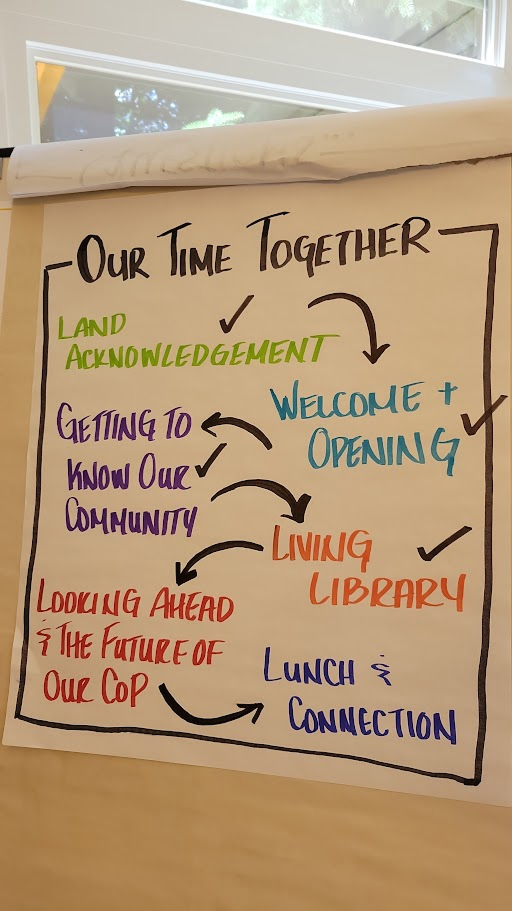 OUR TIME TOGETHER
LAND
ACKNOWLEDGEMENT
WELCOME +
OPENING
GETTING TO
KNOW OUR
COMMUNITY
LIVING
LIBRARY
LOOKING AHEAD
& THE FUTURE OF
OUR COP
LUNCH &
CONNECTION